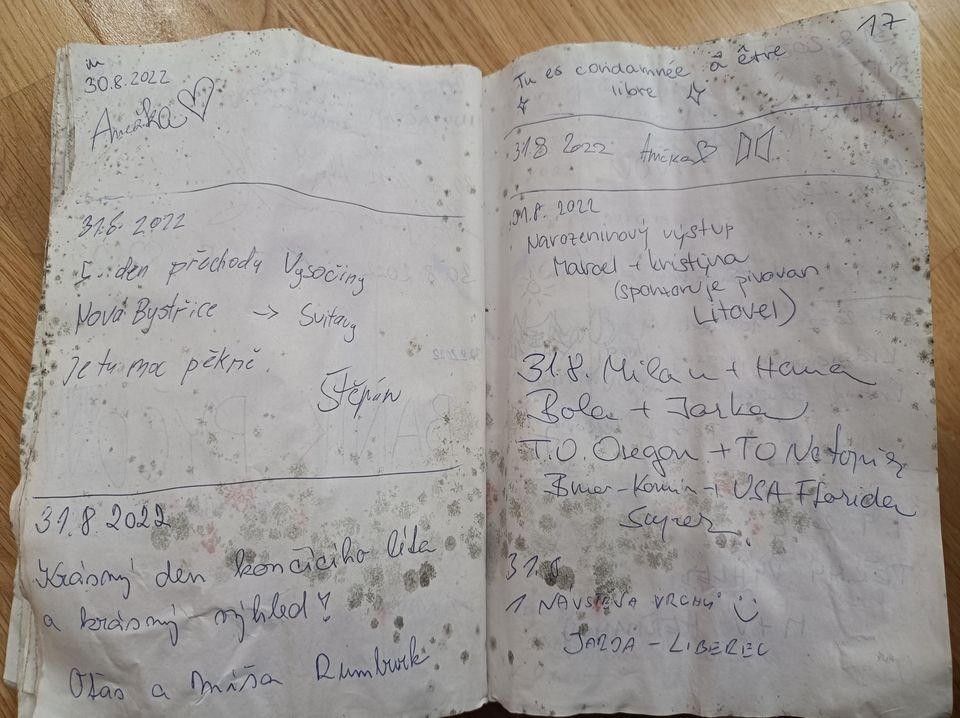 30.8.2022
Anežka
31.8. 2022
I. den přechodu Vysočiny
Nová Bystřice -> Svitavy
Je tu moc pěkně.
Štěpán
31.8.2022
Krásný den končícího léta
a krásný výhled!
Otas a Míša Rumburk
17
Tu es condamnée â être
libre
31 8 2022 Anežka
31.8. 2022
Narozeninový výstup
Marcel + Kristýna
(sponzoruje pivovar
Litovel)
31.8. Milan + Hana
Bola + Jarka
T.O. Oregon + TO
USA Florida
Super.
31.8
1 NÁVŠTĚVA VRCHU
JARDA - LIBEREC